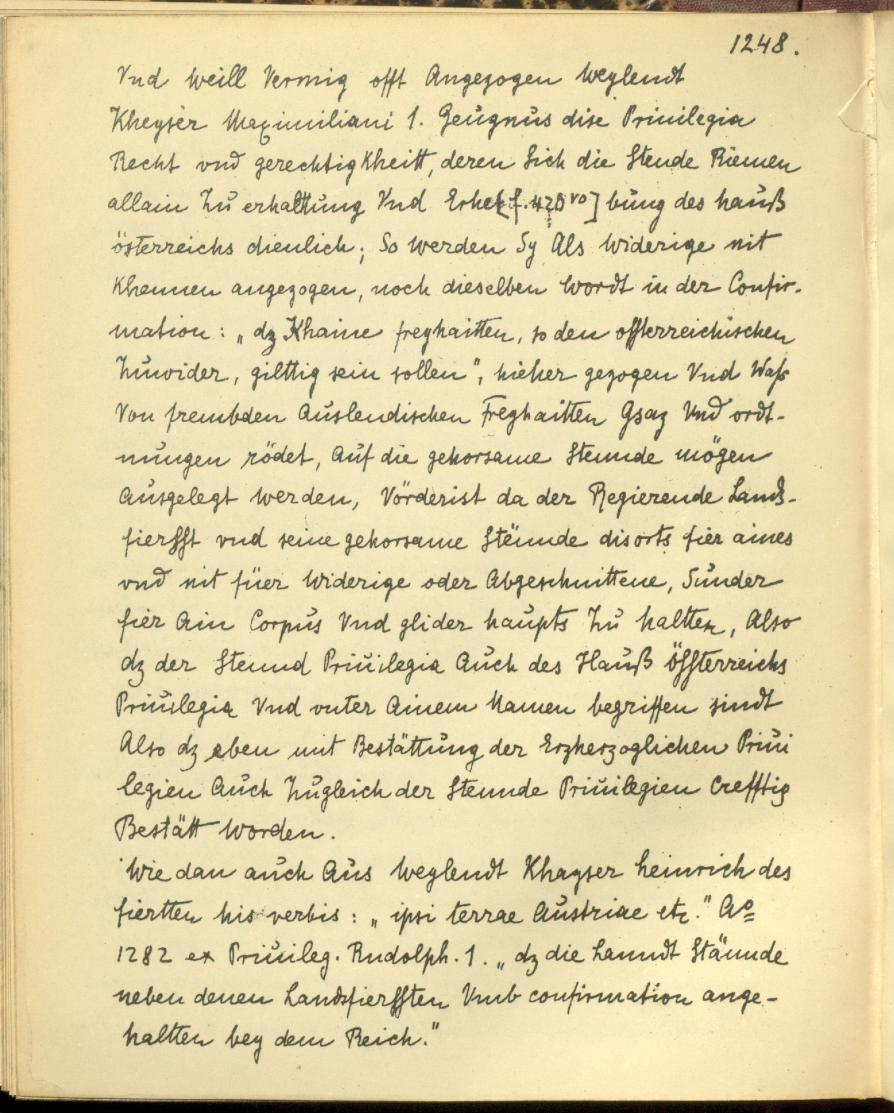 1248.
Vnd weill Vermig offt Angezogen weylendt
Kheyser Maximiliani 1. Zeugnus dise Priuilegia
Recht vnd gerechtigkheitt, deren Sich die Stende Riemen
allain Zu erhalttung Vnd Erhe[f. 420 vo] bung des hauß
österreichs dienlich; So werden Sy Als widerige nit
khennen angezogen, noch dieselben wordt in der Confir-
mation: „dz Khaine freyhaitten, so den offterreichischen
Zuwider, gilttig sein sollen", hieher gezogen Vnd Wass
Von frembden Auslendischen Freyhaitten Gsaz Vnd ordt-
nungen rödet, Auf die gehorsame Stennde mögen
Ausgelegt werden, Vörderist da der Regierende Lands-
fierfft vnd seine gehorsame Stënnde disorts fier aines
vnd nit füer widerige oder Abgeschnittene, Sunder
fier Ain Corpus Vnd glider haupts Zu haltten, Also
dz der Stennd Priuilegia Auch des Hauß öffterreichs
Priuilegia Vnd vnter Ainem Namen begriffen sindt
Also dz eben mit Bestättung der Erzherzoglichen Priui
legien Auch Zugleich der Stennde Priuilegien Crefftig
Bestätt worden.
Wie dan auch Aus weylendt Khayser heinrich des
fiertten his verbis: „ipsi terrae Austriae etc." Ao
1282 ex Priuileg. Rudolph. 1. „dz die Lanndt Stännde
neben denen Landsfierfften Vmb confirmation ange-
haltten bey dem Reich."